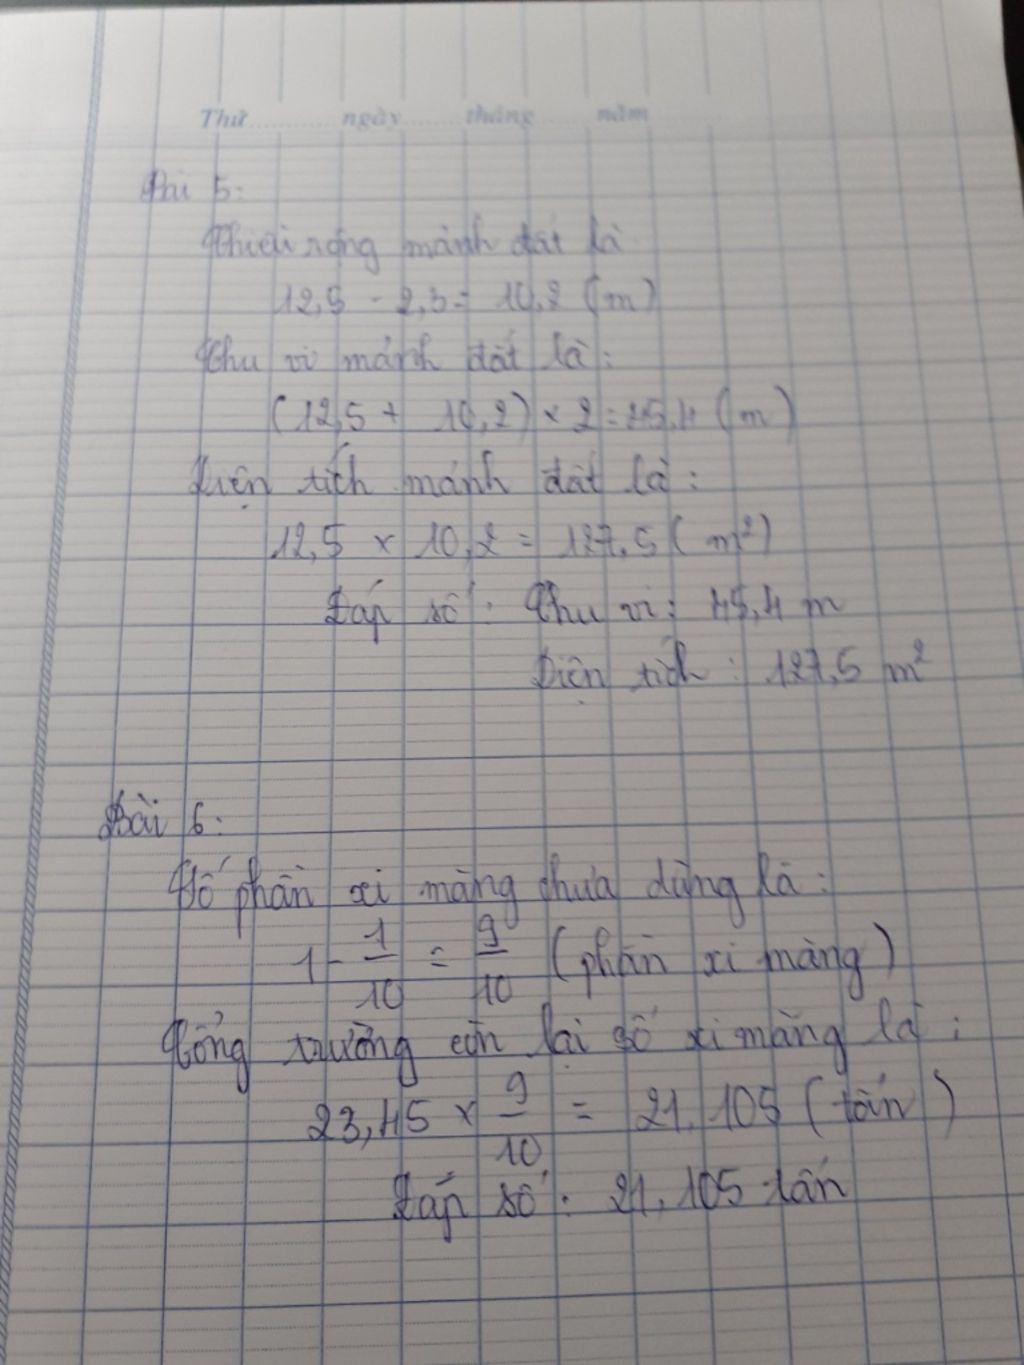 Thứ.............ngày.........tháng.........năm
Bài 5:
Chiều rộng mảnh đất là
12,5 - 2,3 = 10,2 (m)
Chu vi mảnh đất là:
(12,5 + 10,2) × 2 = 45,4 (m)
Diện tích mảnh đất là:
12,5 × 10,2 = 127,5 (m²)
Đáp số: Chu vi: 45,4 m
Diện tích: 127,5 m²
Bài 6:
Số phần xi măng chưa dùng là:
1 - 1/10 = 9/10 (phần xi măng)
Công trường còn lại số xi măng là:
23,45 × 9/10 = 21,105 (tấn)
Đáp số: 21,105 tấn